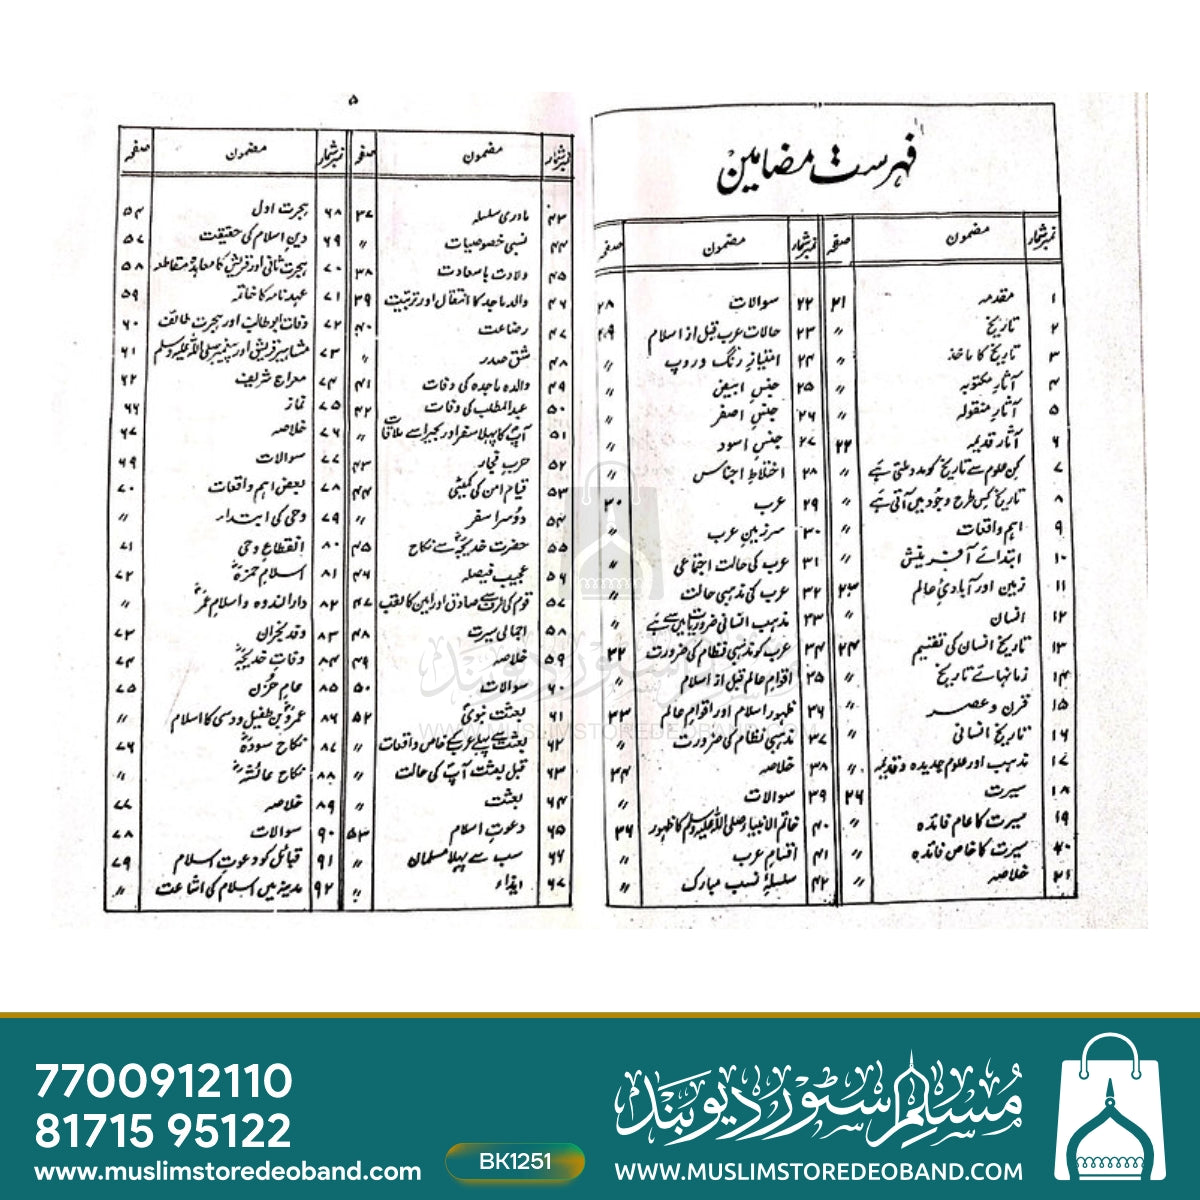 فہرست مضامین
نمبر شمار مضمون صفحہ
۱ مقدمہ ۲۱
۲ تاریخ 〃
۳ تاریخ کا ماخذ
۴ آثار مکتوبہ
۵ آثار منقولہ 〃
۶ آثار قدیمہ ۲۲
۷ کن علوم سے تاریخ کو مدد ملتی ہے 〃
۸ تاریخ کس طرح وجود میں آتی ہے 〃
۹ اہم واقعات
۱۰ ابتدائے آفرینش 〃
۱۱ زمین اور آبادئ عالم ۲۳
۱۲ انسان 〃
۱۳ تاریخ انسان کی تقسیم ۲۴
۱۴ زمانہائے تاریخ 〃
۱۵ قرن و عصر 〃
۱۶ تاریخ انسانی 〃
۱۷ مذہب اور علوم جدیدہ و قدیمہ 〃
۱۸ سیرت ۲۶
۱۹ سیرت کا عام فائدہ 〃
۲۰ سیرت کا خاص فائدہ 〃
۲۱ خلاصہ 〃
نمبر شمار مضمون صفحہ
۲۲ سوالات ۲۸
۲۳ حالات عرب قبل از اسلام ۲۹
۲۴ امتیاز رنگ و روپ 〃
۲۵ جنس ابیض 〃
۲۶ جنس اصفر 〃
۲۷ جنس اسود 〃
۲۸ اختلاط اجناس 〃
۲۹ عرب ۳۰
۳۰ سرزمین عرب 〃
۳۱ عرب کی حالت اجتماعی 〃
۳۲ عرب کی مذہبی حالت 〃
۳۳ مذہب انسانی ضروریات میں سے ہے 〃
۳۴ عرب کو مذہبی نظام کی ضرورت ۳۲
۳۵ اقوام عالم قبل از اسلام 〃
۳۶ ظہور اسلام اور اقوام عالم ۳۳
۳۷ مذہبی نظام کی ضرورت 〃
۳۸ خلاصہ ۳۴
۳۹ سوالات 〃
۴۰ خاتم الانبیاء صلی اللہ علیہ وسلم کا ظہور ۳۶
۴۱ اقسام عرب 〃
۴۲ سلسلۂ نسب مبارک 〃
۵
نمبر شمار مضمون صفحہ
۴۳ مادری سلسلہ ۳۷
۴۴ نسبی خصوصیات 〃
۴۵ ولادت با سعادت ۳۸
۴۶ والد ماجد کا انتقال اور تربیت ۳۹
۴۷ رضاعت ۴۰
۴۸ شق صدر 〃
۴۹ والدہ ماجدہ کی وفات ۴۱
۵۰ عبدالمطلب کی وفات ۴۲
۵۱ آپ کا پہلا سفر اور بحیرا سے ملاقات 〃
۵۲ حرب فجار ۴۳
۵۳ قیام امن کی کمیٹی ۴۴
۵۴ دوسرا سفر 〃
۵۵ حضرت خدیجہؓ سے نکاح ۴۵
۵۶ عجیب فیصلہ ۴۶
۵۷ قوم کی طرف سے صادق اور امین کا لقب ۴۷
۵۸ اجمالی سیرت ۴۸
۵۹ خلاصہ ۴۹
۶۰ سوالات ۵۰
۶۱ بعثت نبویؐ ۵۲
۶۲ بعثت سے پہلے عرب کے خاص واقعات 〃
۶۳ قبل بعثت آپؐ کی حالت 〃
۶۴ بعثت 〃
۶۵ دعوت اسلام ۵۳
۶۶ سب سے پہلا مسلمان 〃
۶۷ ایذاء 〃
نمبر شمار مضمون صفحہ
۶۸ ہجرت اول ۵۴
۶۹ دین اسلام کی حقیقت ۵۷
۷۰ ہجرت ثانی اور قریش کا معاہدۂ مقاطعہ ۵۸
۷۱ عہدنامہ کا خاتمہ ۵۹
۷۲ وفات ابوطالب اور ہجرت طائف ۶۰
۷۳ مشاہیر قریش اور پیغمبر صلی اللہ علیہ وسلم ۶۱
۷۴ معراج شریف ۶۲
۷۵ نماز ۶۶
۷۶ خلاصہ ۶۷
۷۷ سوالات ۶۹
۷۸ بعض اہم واقعات ۷۰
۷۹ وحی کی ابتداء 〃
۸۰ انقطاع وحی ۷۱
۸۱ اسلام حمزہؓ ۷۲
۸۲ دارالندوہ و اسلام عمرؓ 〃
۸۳ وفد نجران ۷۳
۸۴ وفات خدیجہؓ ۷۴
۸۵ عام حزن ۷۵
۸۶ عمروؓ بن طفیل دوسی کا اسلام 〃
۸۷ نکاح سودہؓ ۷۶
۸۸ نکاح عائشہؓ 〃
۸۹ خلاصہ ۷۷
۹۰ سوالات ۷۸
۹۱ قبائل کو دعوت اسلام ۷۹
۹۲ مدینہ میں اسلام کی اشاعت 〃
مسلم سٹور دیوبند
WWW.MUSLIMSTOREDEOBAND.COM
7700912110
81715 95122
www.muslimstoredeoband.com
BK1251
مسلم سٹور دیوبند
WWW.MUSLIMSTOREDEOBAND.COM